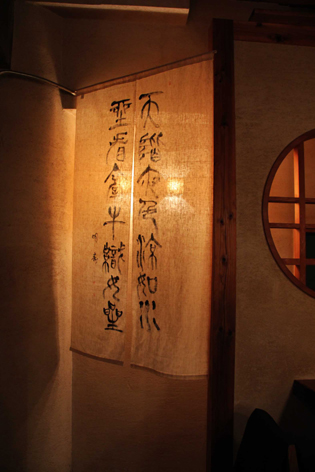 天階夜色涼如水
坐看牽牛織女星